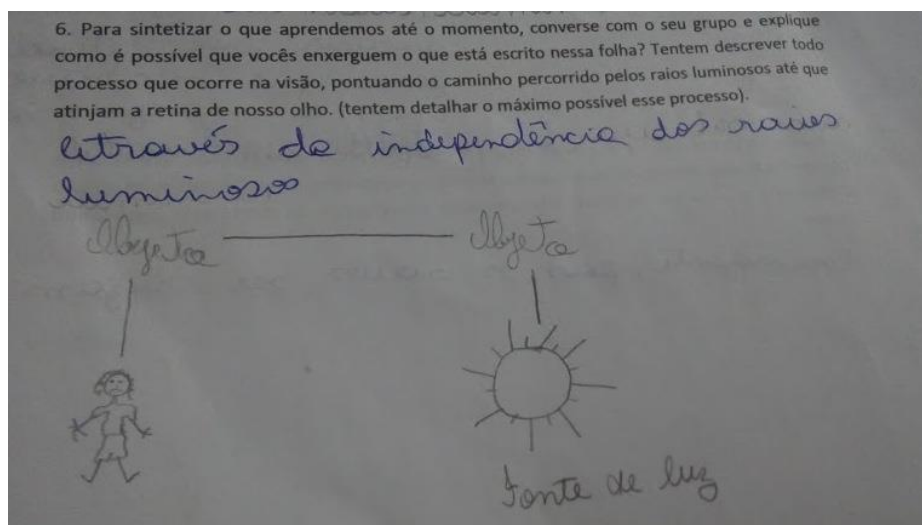 6. Para sintetizar o que aprendemos até o momento, converse com o seu grupo e explique
como é possível que vocês enxerguem o que está escrito nessa folha? Tentem descrever todo
processo que ocorre na visão, pontuando o caminho percorrido pelos raios luminosos até que
atinjam a retina de nosso olho. (tentem detalhar o máximo possível esse processo).
Através da independência dos raios
luminosos
Objeto Objeto
Fonte de luz